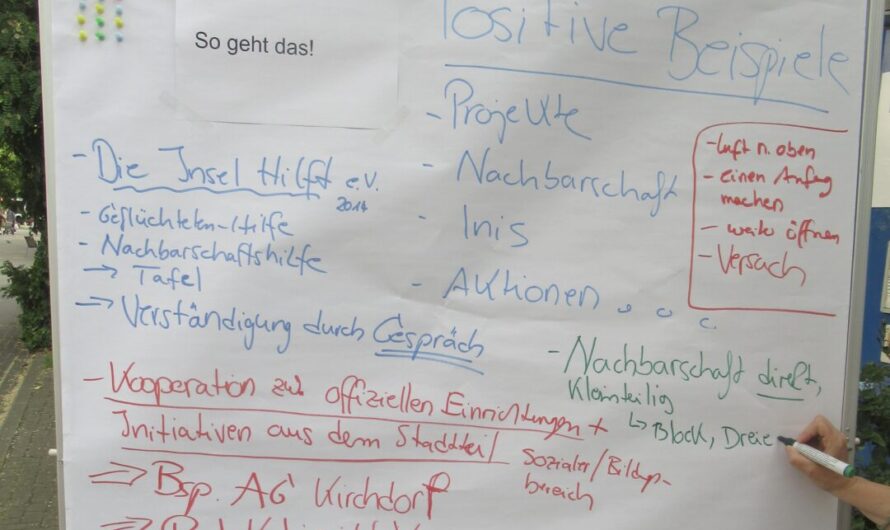 So geht das!
Positive Beispiele
- Projekte
- Nachbarschaft
- Inis
- Aktionen . . .
- Luft n. oben
- einen Anfang
machen
- weiter öffnen
- Versach
- Die Insel Hilft e.V.
2014
- Geflüchteten-Hilfe
- Nachbarschaftshilfe
→ Tafel
⇒ Verständigung durch Gespräch
- Nachbarschaft direkt,
Kleinteilig
↳ Block, Dreie
- Kooperation zw. offiziellen Einrichtungen +
Initiativen aus dem Stadtteil
Sozialer/Bildungs-
bereich
⇒ Bsp. AG Kirchdorf